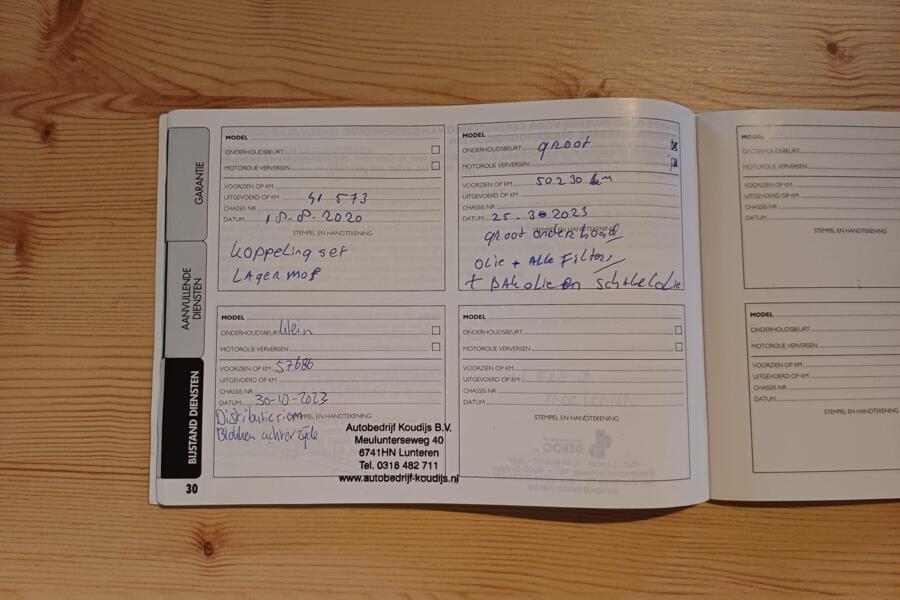 GARANTIE
AANVULLENDE
DIENSTEN
BIJSTAND DIENSTEN
30
MODEL
ONDERHOUDSBEURT
MOTOROLIE VERVERSEN
VOORZIEN OP KM
UITGEVOERD OP KM 41 573
CHASSIS NR
DATUM 18-8-2020
STEMPEL EN HANDTEKENING
koppeling set
LAger mof
MODEL
ONDERHOUDSBEURT groot
MOTOROLIE VERVERSEN
VOORZIEN OP KM 50230 km
UITGEVOERD OP KM
CHASSIS NR
DATUM 25-3-2023
STEMPEL EN HANDTEKENING
groot onderhoud
olie + Alle Filters
+ bak olie en schakelolie
MODEL
ONDERHOUDSBEURT klein
MOTOROLIE VERVERSEN
VOORZIEN OP KM 57686
UITGEVOERD OP KM
CHASSIS NR
DATUM 30-10-2023
STEMPEL EN HANDTEKENING
Distributieriem
Blokken achterzijde
Autobedrijf Koudijs B.V.
Meulunterseweg 40
6741HN Lunteren
Tel. 0318 482 711
www.autobedrijf-koudijs.nl
MODEL
ONDERHOUDSBEURT
MOTOROLIE VERVERSEN
VOORZIEN OP KM
UITGEVOERD OP KM
CHASSIS NR
DATUM
STEMPEL EN HANDTEKENING
MODEL
ONDERHOUDSBEURT
MOTOROLIE VERVERSEN
VOORZIEN OP KM
UITGEVOERD OP KM
CHASSIS NR
DATUM
STEMPEL EN HANDTEKENING
MODEL
ONDERHOUDSBEURT
MOTOROLIE VERVERSEN
VOORZIEN OP KM
UITGEVOERD OP KM
CHASSIS NR
DATUM
STEMPEL EN HANDTEKENING